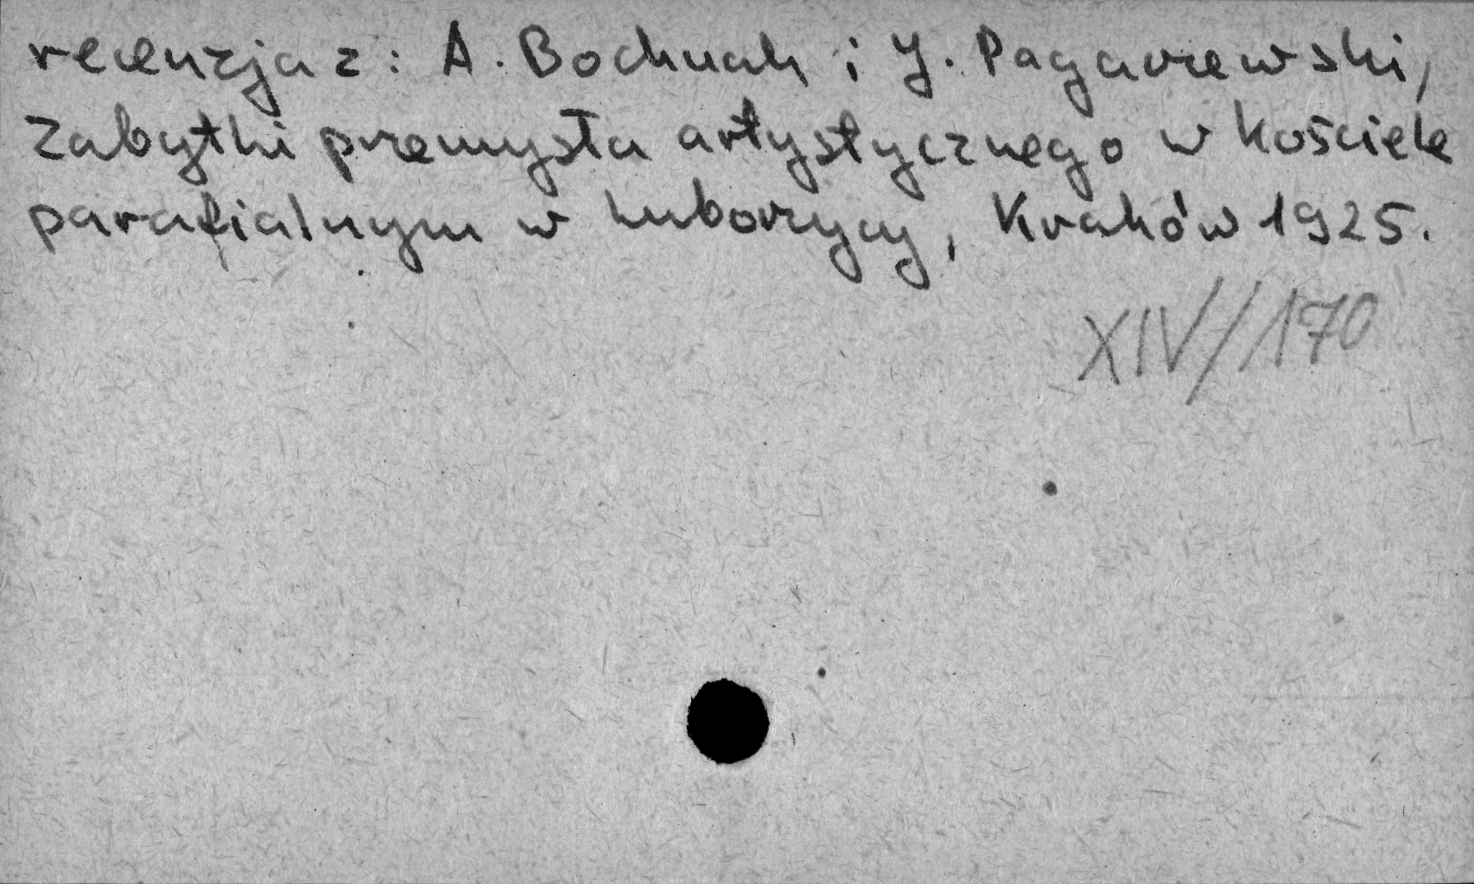 recenzja z: A. Bochnak i J. Pagaczewski,
Zabytki przemysłu artystycznego w kościele
parafialnym w Luborzycy, Kraków 1925.
XIV//170